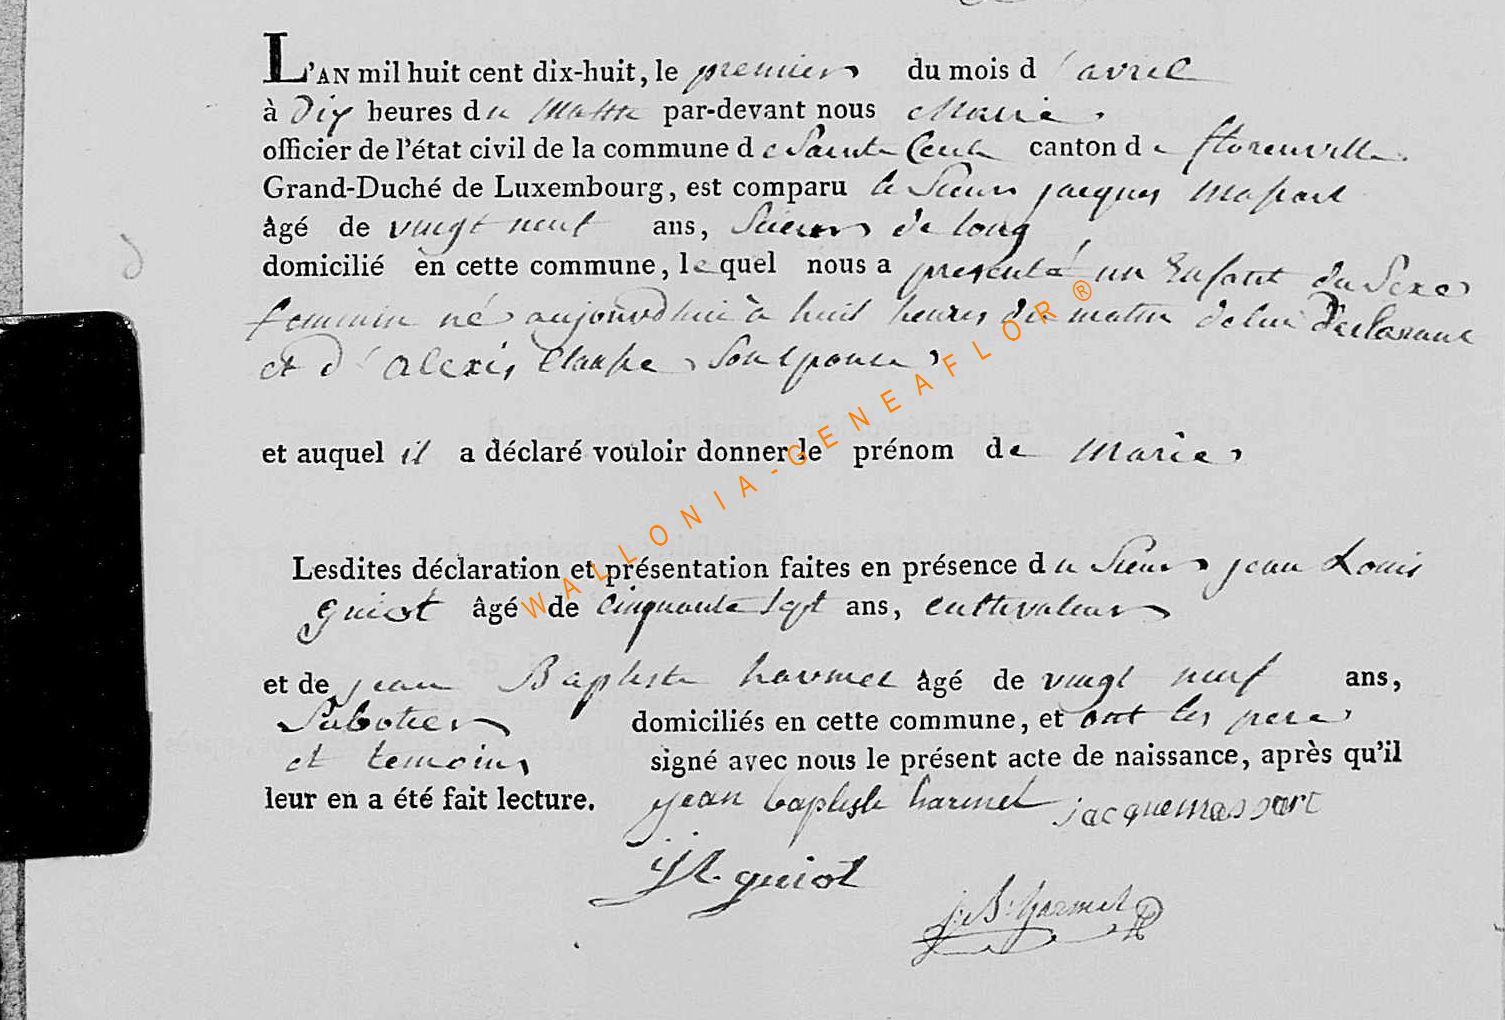 L'AN mil huit cent dix-huit, le premier du mois d'avril
à Dix heures du Matin par-devant nous Maire
officier de l'état civil de la commune de Sainte Cecile canton de florenville
Grand-Duché de Luxembourg, est comparu le Sieur jacques Massart
âgé de vingt neuf ans, Scieur de long
domicilié en cette commune, lequel nous a presenté un Enfant du Sexe
feminin né aujourd'hui à huit heures du matin de lui Declarant
et d'alexis Son Epouse
et auquel il a déclaré vouloir donner le prénom de Marie
Lesdites déclaration et présentation faites en présence du Sieur jean Louis
guiot âgé de cinquante sept ans, cultivateur
et de jean Baptiste harmel âgé de vingt neuf ans,
Sabotier domiciliés en cette commune, et ont les pere
et temoins signé avec nous le présent acte de naissance, après qu'il
leur en a été fait lecture. jean baptiste harmel jacquemassart
JL guiot
j:B: harmel
WALLONIA-GENEAFLOR®